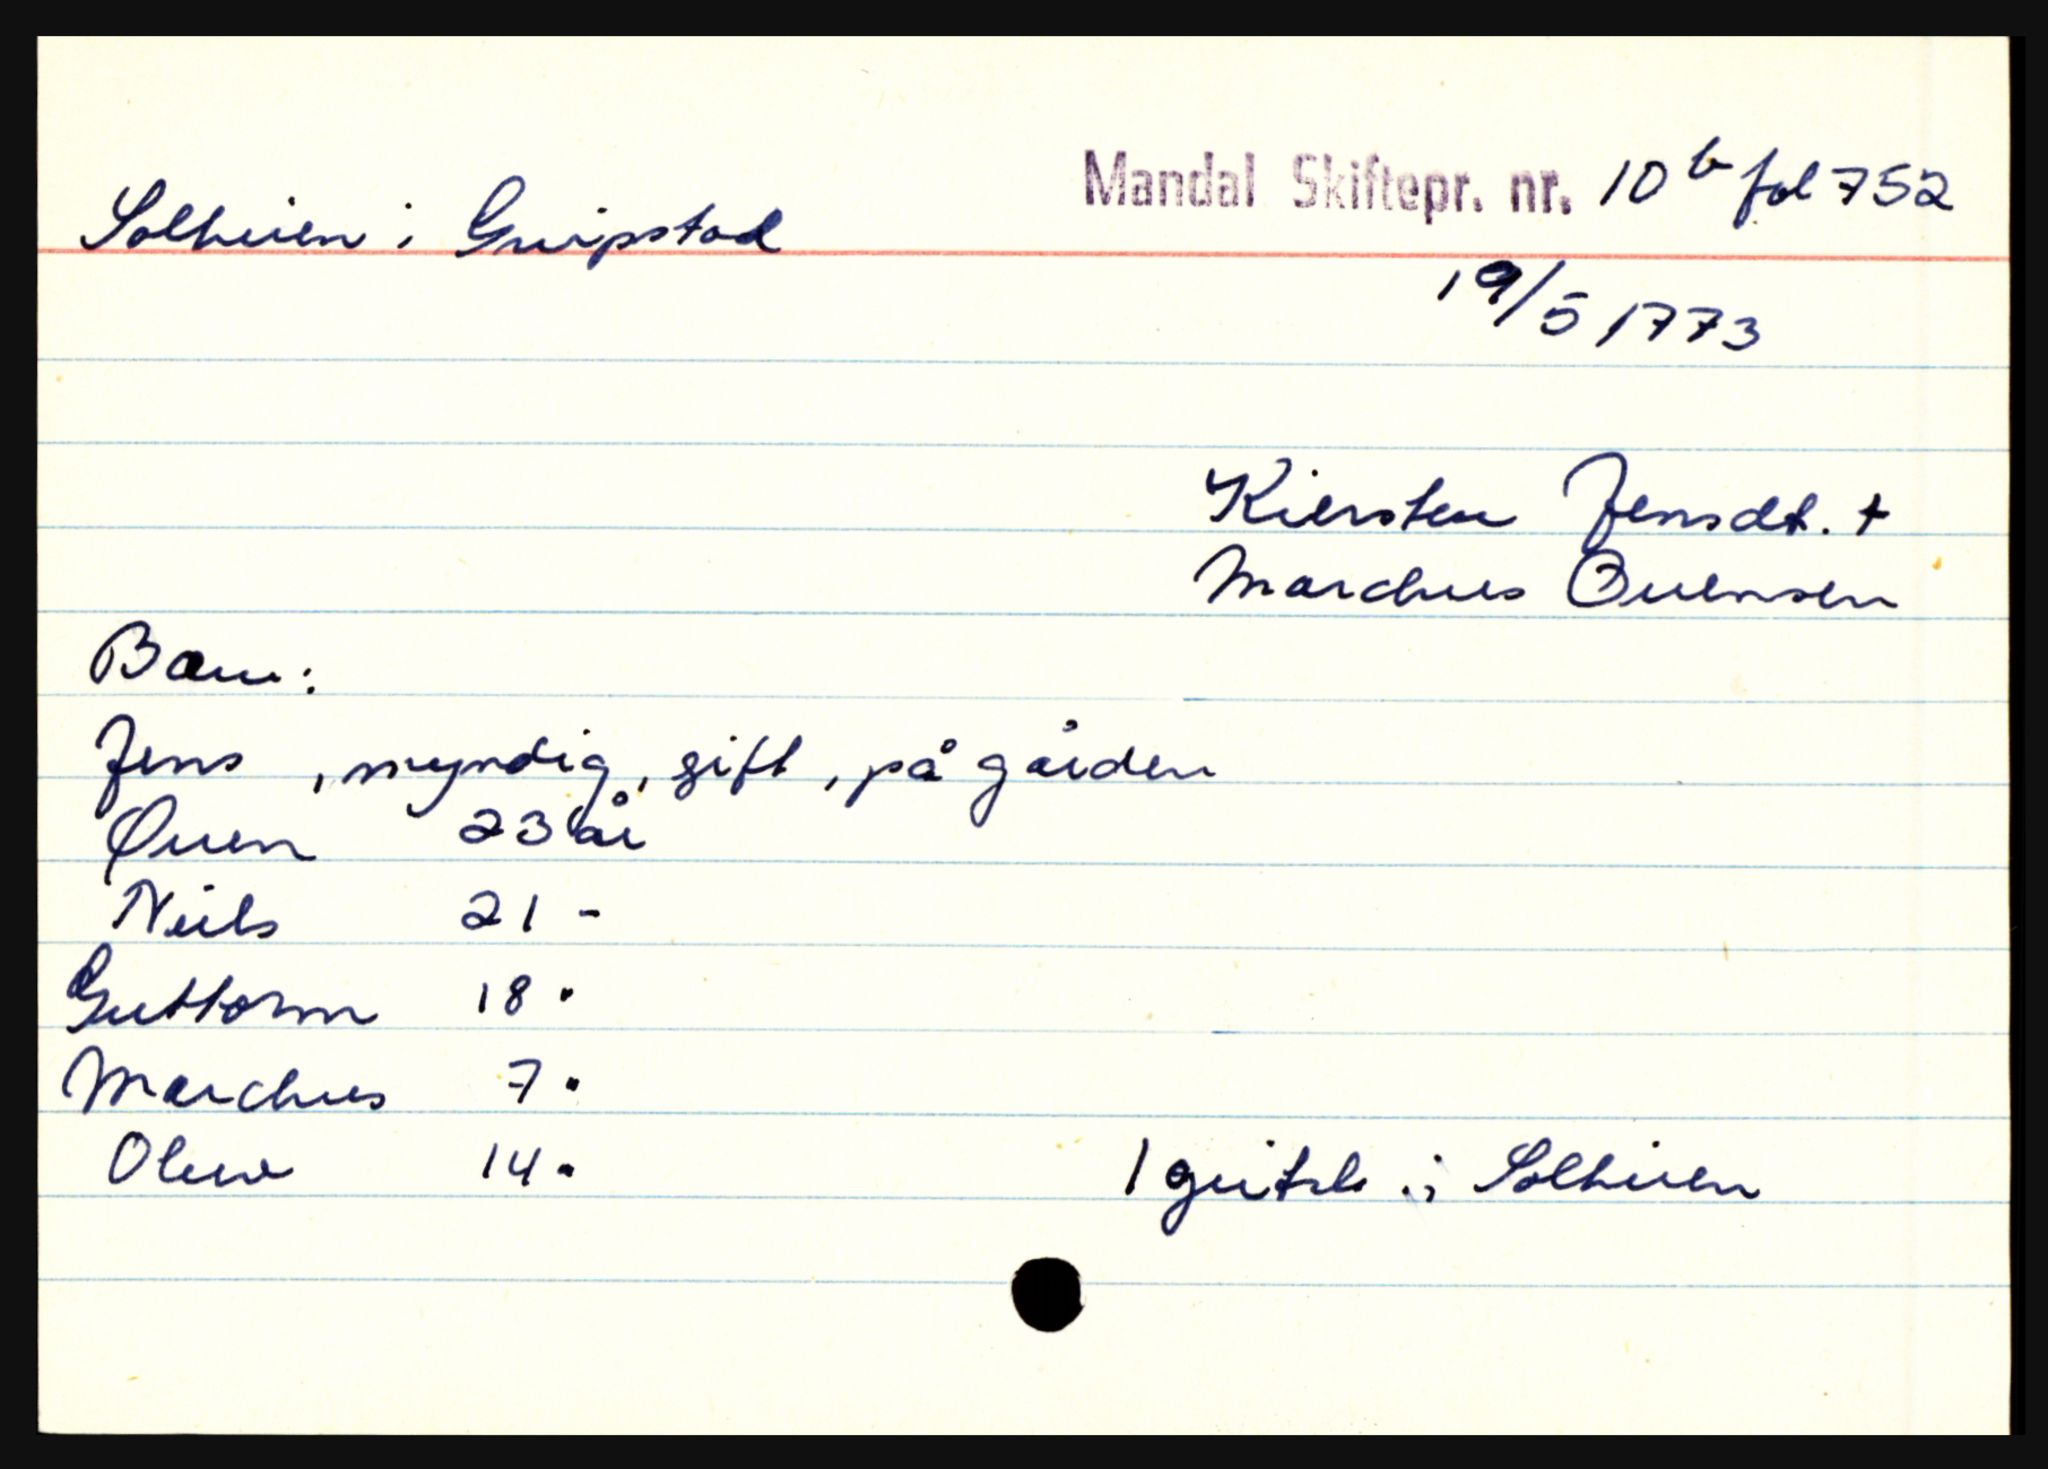 Mandal Skiftepr. nr. 10 b fol 752
Solheien i Greipstad
19/5 1773
Kiersten Jensdt. +
Marchus Ouensen
Barn:
Jens , myndig, gift, på gården
Ouen 23 år
Neils 21 -
Guttorm 18 "
Marchus 7 "
Oluv 14 "
1 geitsk. i Solheien